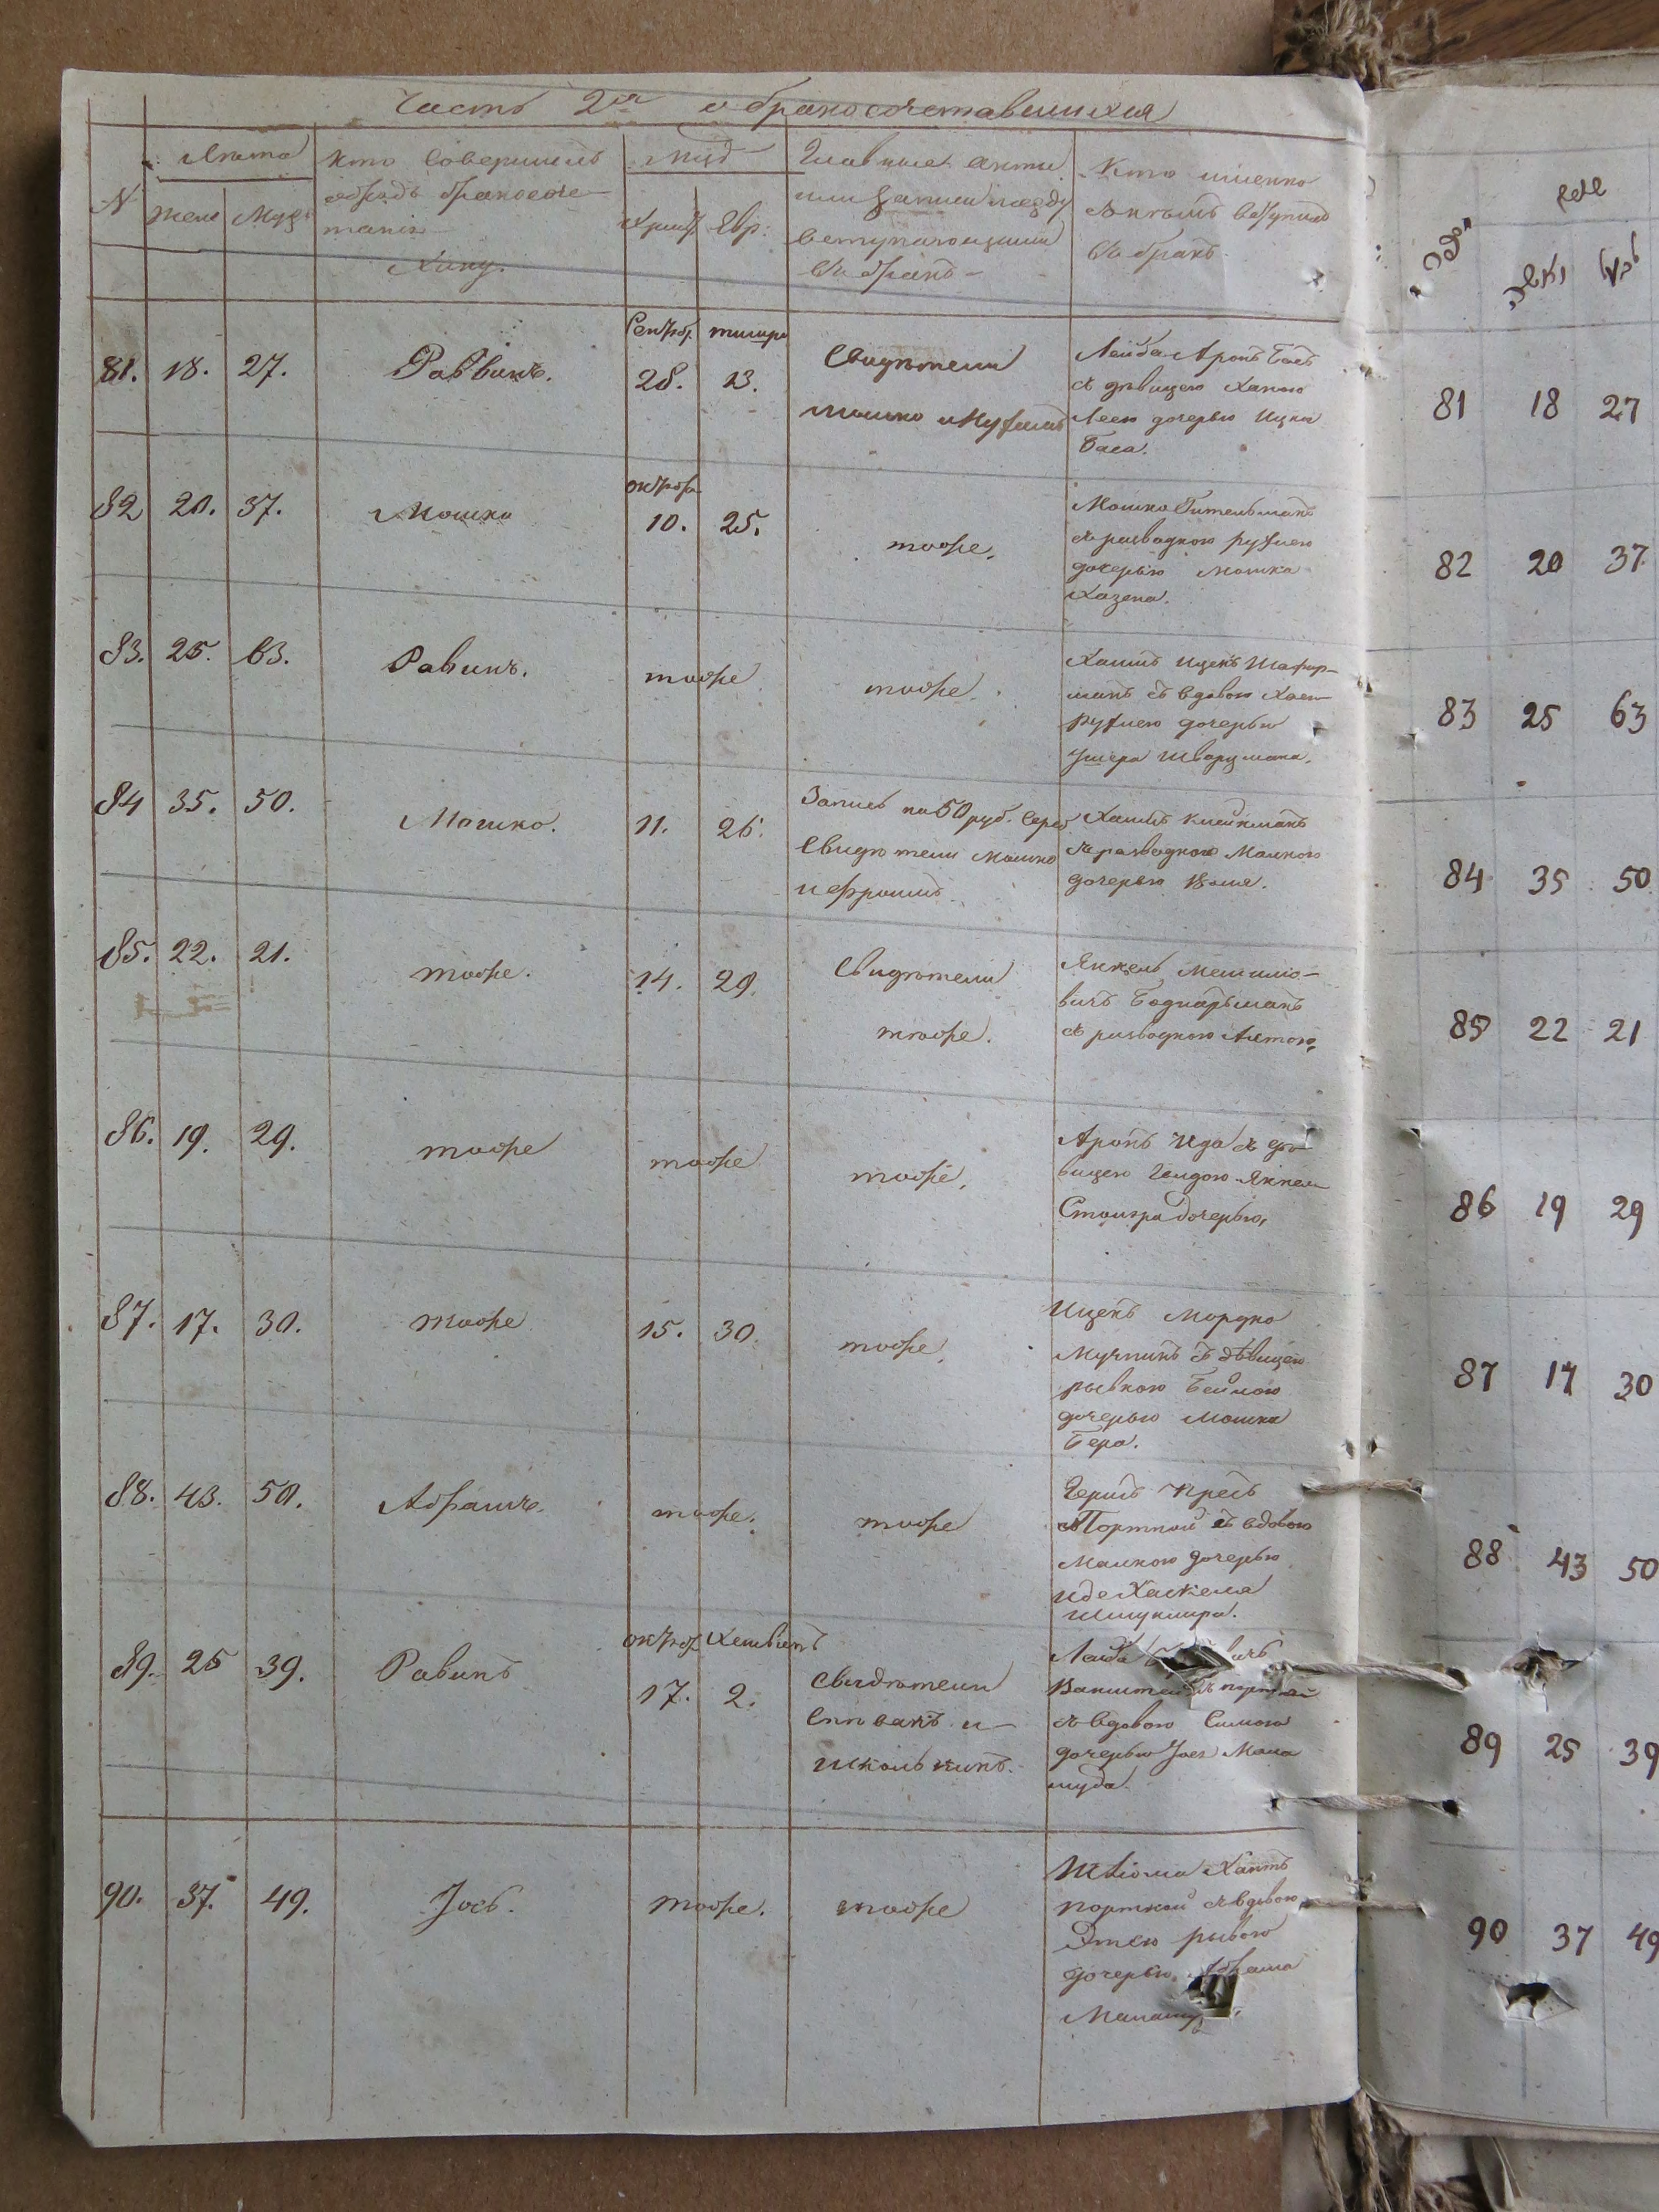 Часть 2ая о бракосочетавшихся
N
Лета
Жены
Мужа
Кто совершилъ
обрядъ бракосоче-
танія
Хипу.
Христ
Евр:
Главные акты
или записи между
вступающими
въ бракъ
Кто именно
съ кѣмъ вступилъ
въ бракъ
81. 18. 27.
Раввинъ.
Сентяб.
28.
тишри
13.
Свидѣтели
Мошко и Нухимъ
Лейба Аронъ Басъ
съ дѣвицею Ханою
Леею дочерью Ицка
Баса.
82 20. 37.
Мошко
октябр
10. 25.
тоже.
Мошко Гительманъ
съ разводкою рухлею
дочерью Мошка
Хазена.
83. 25. 63.
Равинъ.
тоже
тоже.
Хаимъ Ицекъ Шафир-
манъ съ вдовою Хаею
рухлею дочерью
Ушера Шварцмана.
84 35. 50.
Мошко.
11. 26.
Запись на 50 руб. сереб
Свидѣтели Мошко
и Фроимъ
Хаимъ Клейнманъ
съ разводкою Малкою
дочерью
85. 22. 21.
тоже.
14. 29.
Свидѣтели
тоже.
Янкель
вичъ Боднарьманъ
съ разводкою
86. 19. 29.
тоже
тоже
тоже.
Аронъ Ида съ дѣ-
вицею Гендою Янкеля
дочерью,
87. 17. 30.
тоже
15. 30.
тоже.
Ицекъ Мордко
Мучникъ съ дѣвицею
рывкою Бейлою
дочерью Мошка
Бера.
88. 43. 50.
Абрамъ.
тоже.
тоже
Гершъ Кресъ
Портной съ вдовою
Малкою дочерью
Иде Хаскеля
89. 25 39.
Равинъ
октяб. Хешвинъ
17. 2.
Свидѣтели
Спиванъ и
Школьникъ.
Лейба
съ вдовою Симою
дочерью
90. 37. 49.
Іосъ.
тоже.
тоже
Шліома
портной съ вдовою
Этею рывою
дочерью Абрама
מספר
שנים
ואשה
לבעל
81 18 27
82 20 37
83 25 63
84 35 50
85 22 21
86 19 29
87 17 30
88 43 50
89 25 39
90 37 49